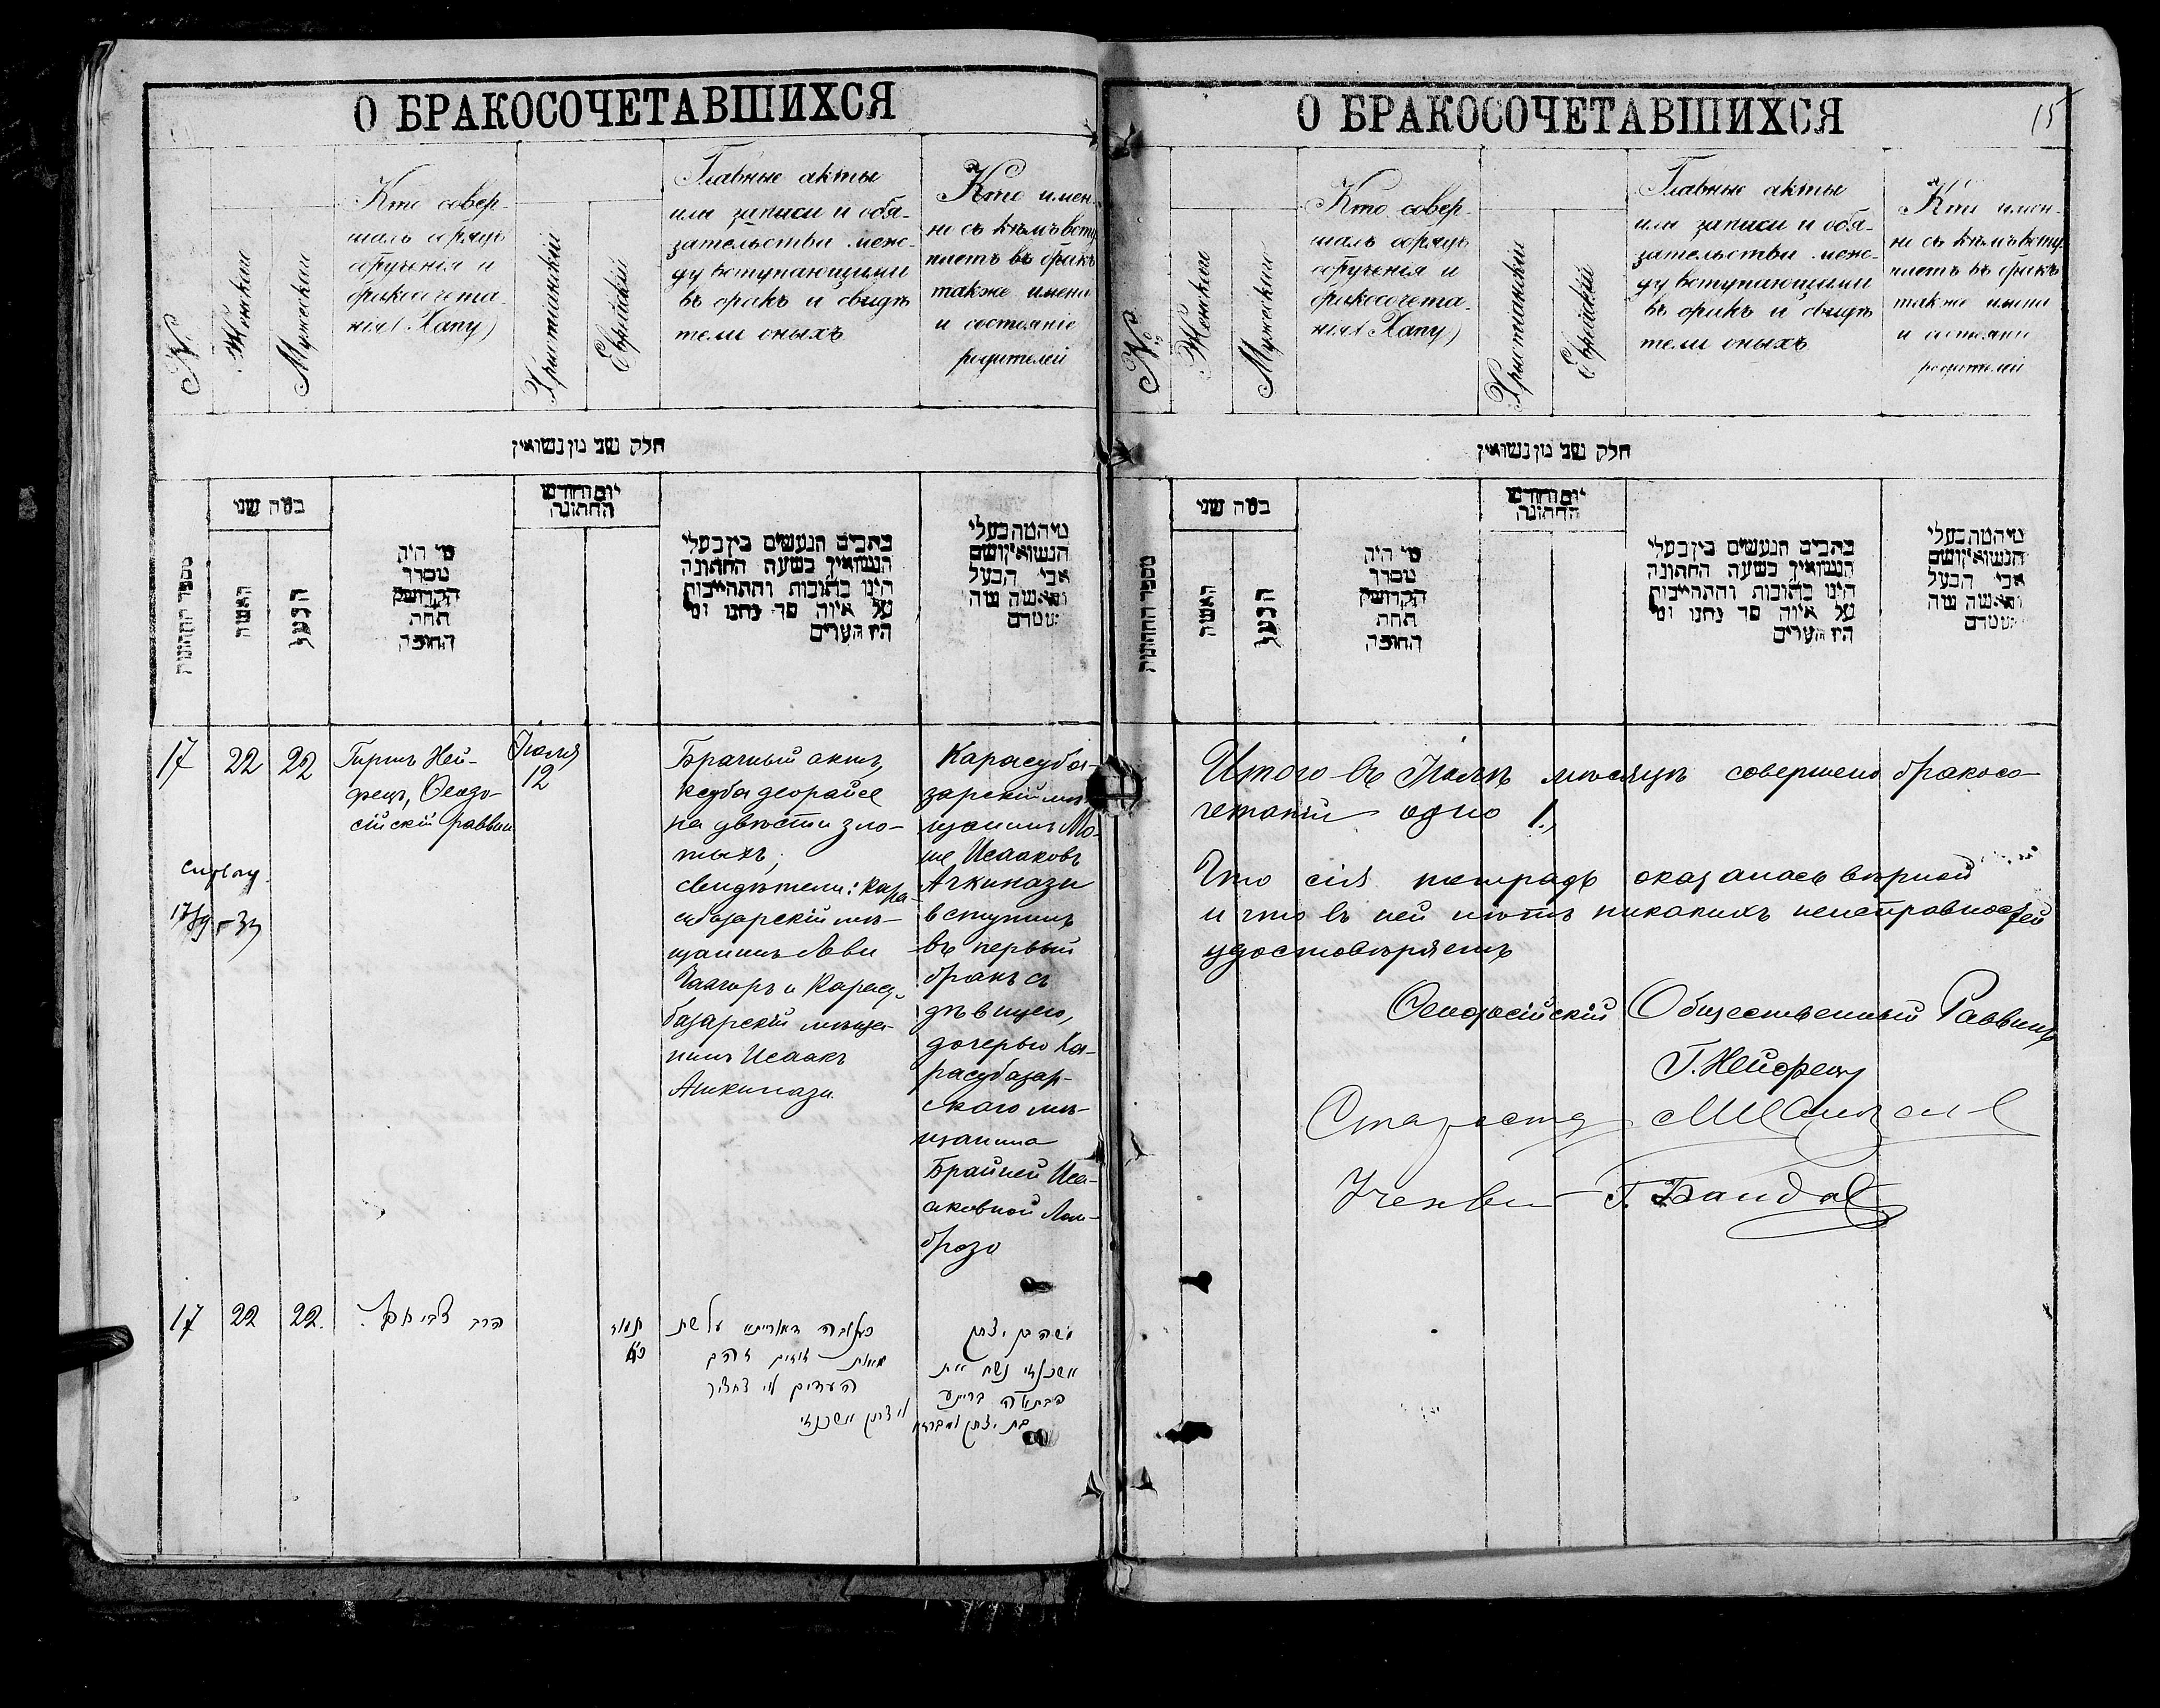 О БРАКОСОЧЕТАВШИХСЯ
№
Женскаи
Мужескаи
Кто совер-
шалъ обрядъ
обрученія и
бракосочета-
нія (Хапу)
Христіанскій
Еврейскій
Главные акты
или записи и обя-
зательства меж-
ду вступающими
въ бракъ и свидѣ
тели оныхъ
Кто имен-
но съ кѣмъ всту
паетъ въ бракъ
также имена
и состояніе
родителей
חלק שני מן נשואין
מספר החתונות
כמה שני
האשה
הבעל
מי היה
מסדר
הקדושין
תחת
החופה
יום וחודש
החתונה
כתבים הנעשים בין בעלי
הנשואין בשעת החתונה
היינו כתובות והתחייבות
על איזה סך נתנו ומי
היו העדים
מיהמה בעלי
הנשואין ושם
אבי הבעל
והאשה מה
17
22
22
Гиршъ Ней-
фецъ, Ѳеодо-
сійскій раввин
Іюля
12
Брачный актъ,
ксуба деорайсе
на двѣсти зло-
тыхъ,
свидѣтели: Кара-
субазарскій мѣ-
щанинъ Леви
и Карасу-
базарскій мѣща-
нинъ Исаакъ
Ашкинази.
Карасуба-
зарскій мѣ-
щанинъ Мо-
ше Исааковъ
Ачкинази
вступилъ
въ первый
бракъ съ
дѣвицею,
дочерью Ка-
расубазар-
скаго мѣ-
щанина
Брайней Иса-
аковной Лом-
брозо
17
22
22.
הרב צבי
תמוז
כתובה דאורייתא על שתי
מאות זוזים זהב
העדים לוי
יצחק אשכנזי
משה בן יצחק
אשכנזי נשא את
הבתולה בריינע
בת יצחק לומברוזו
О БРАКОСОЧЕТАВШИХСЯ
15
№
Женскаи
Мужескаи
Кто совер-
шалъ обрядъ
обрученія и
бракосочета-
нія (Хапу)
Христіанскій
Еврейскій
Главные акты
или записи и обя-
зательства меж-
ду вступающими
въ бракъ и свидѣ
тели оныхъ
Кто имен-
но съ кѣмъ всту
паетъ въ бракъ
также имена
и состояніе
родителей
חלק שני מן נשואין
מספר החתונות
כמה שני
האשה
הבעל
מי היה
מסדר
הקדושין
תחת
החופה
יום וחודש
החתונה
כתבים הנעשים בין בעלי
הנשואין בשעת החתונה
היינו כתובות והתחייבות
על איזה סך נתנו ומי
היו העדים
מיהמה בעלי
הנשואין ושם
אבי הבעל
והאשה מה
Итого въ Іюлѣ мѣсяцѣ совершено бракосо-
четаній одно 1.,
Что сія тетрадь оказалась вѣрной
и что въ ней нѣтъ никакихъ неисправностей
удостовѣряетъ
Ѳеодосійскій Общественный Раввинъ
Г. Нейфецъ
Староста
Г. Бандас